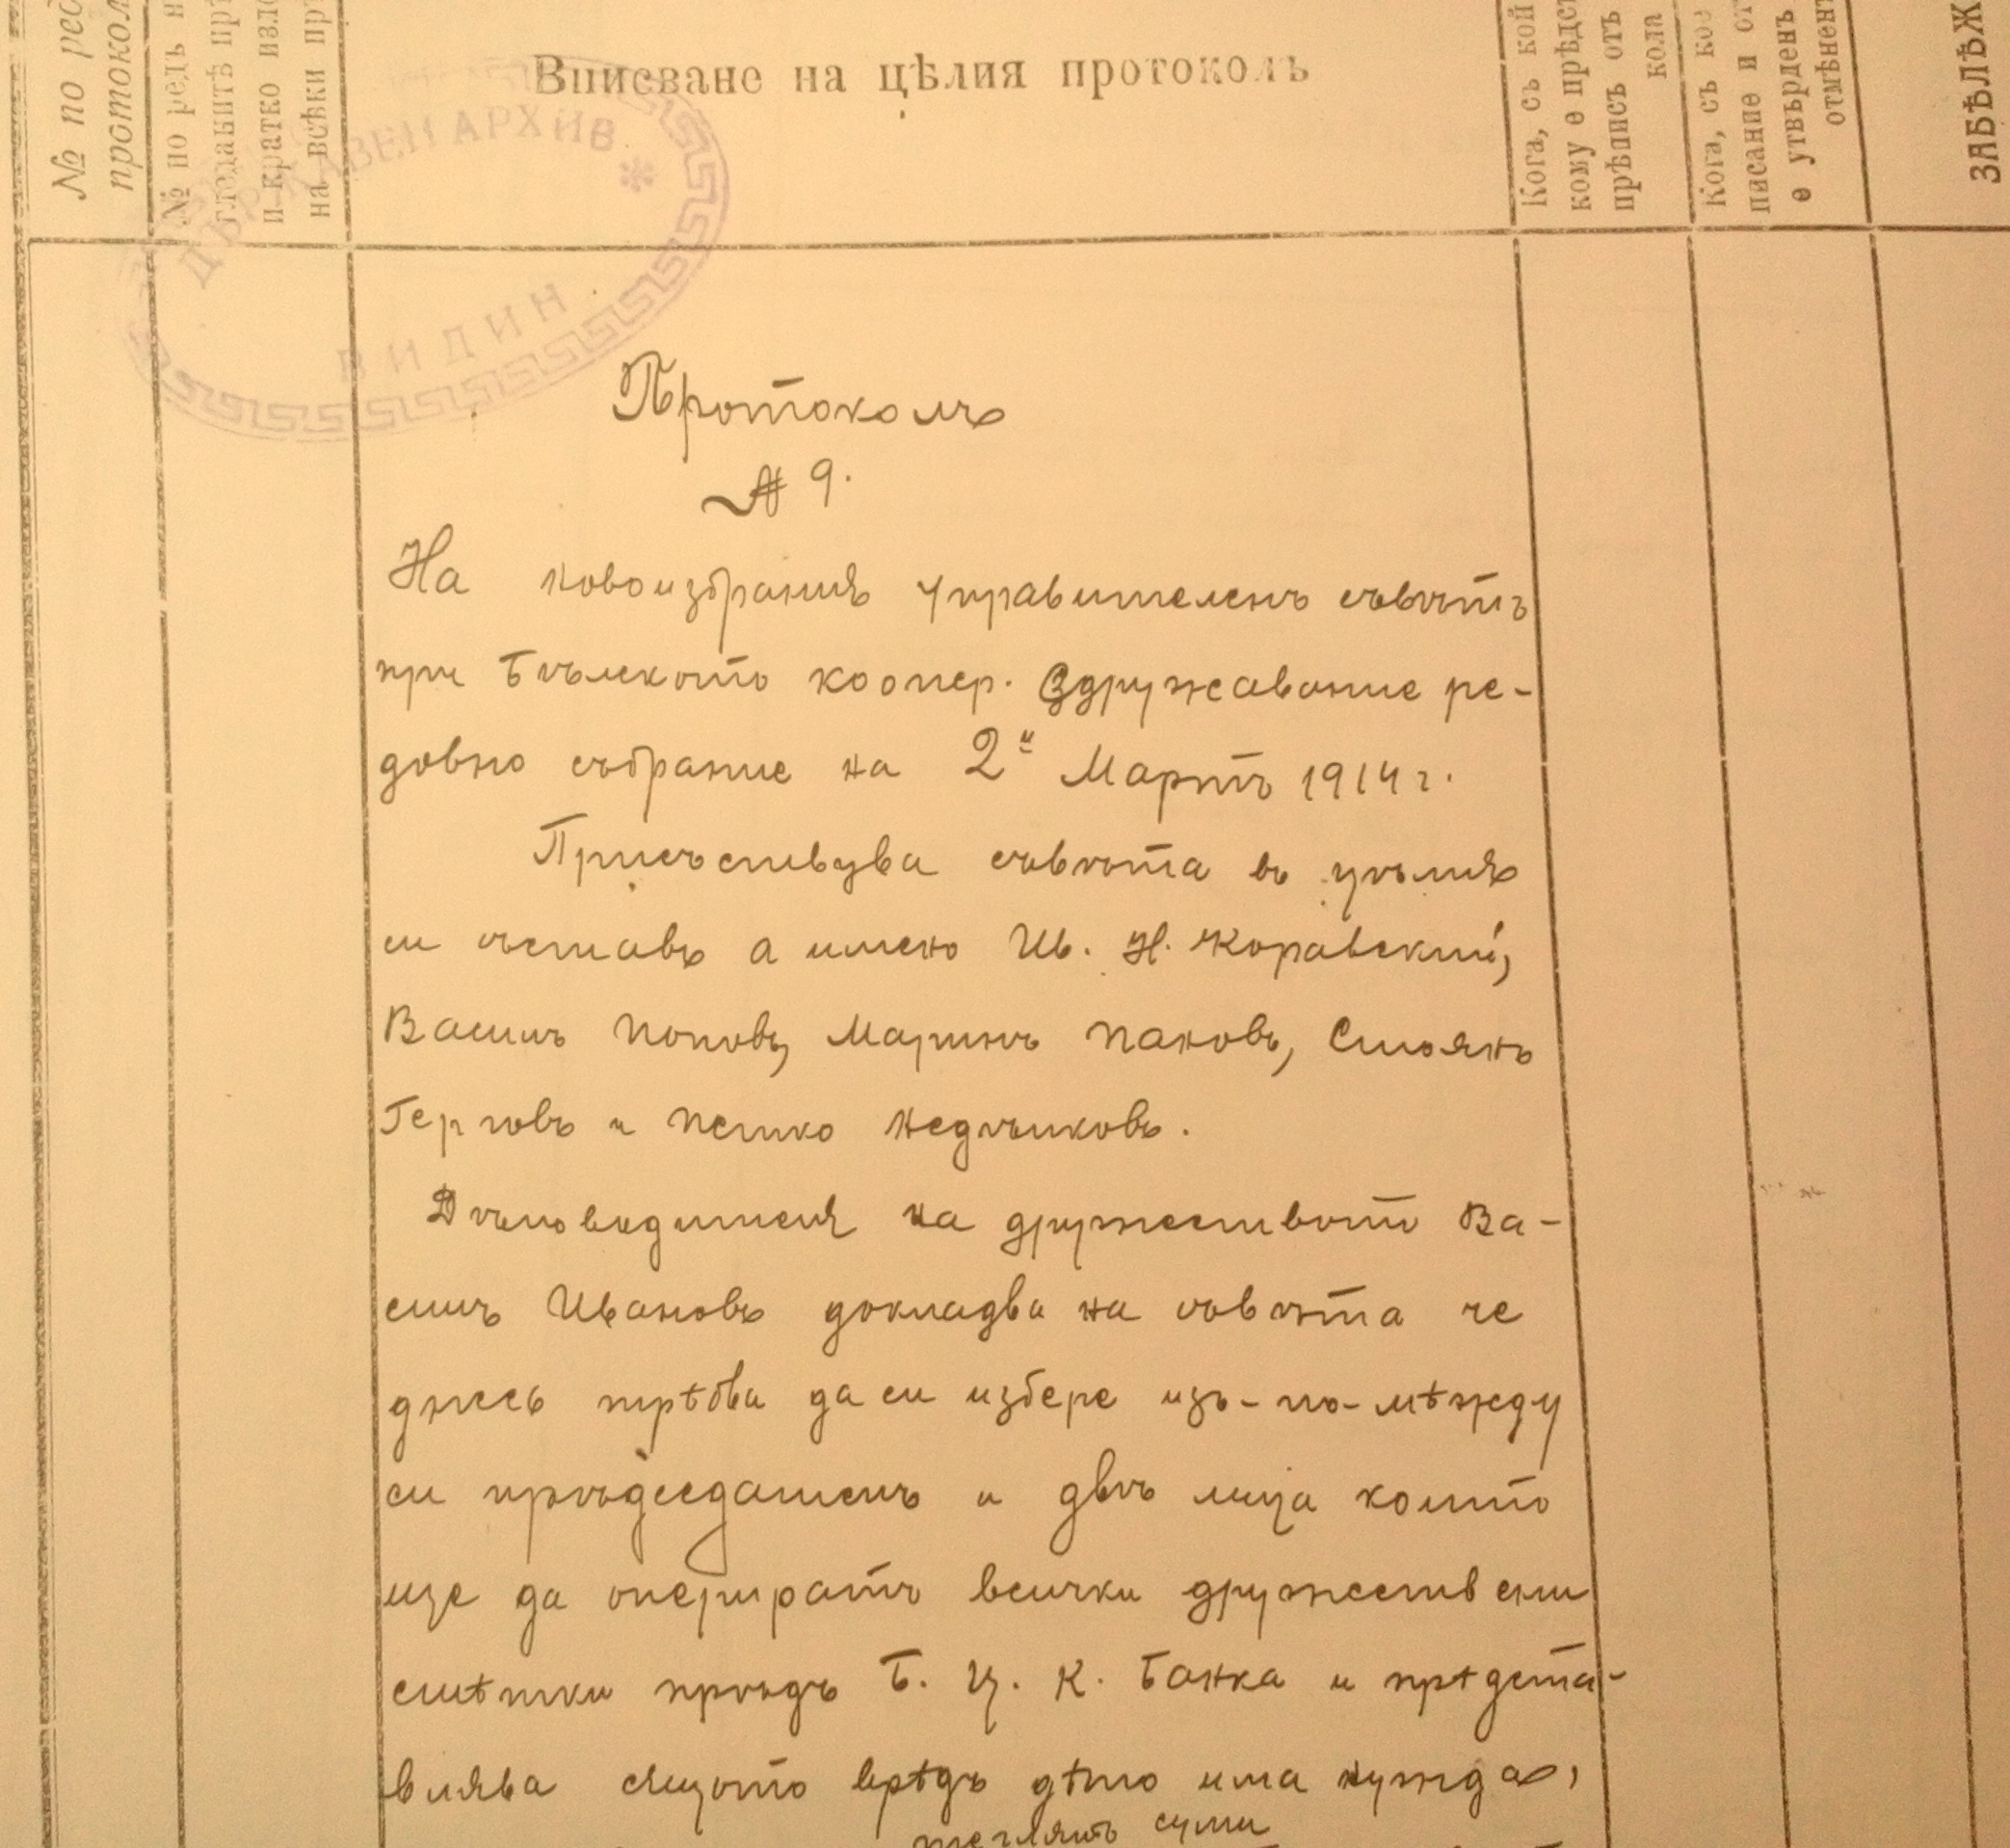 № по ред
протокол
№ по редъ н
гледанитѣ прѣ
и кратко изло
на всѣки пр
Вписване на цѣлия протоколъ
Кога, съ кой
кому е прѣдст
прѣписъ отъ
кола
Кога, съ кое
писание и от
е утвърденъ
отмѣненъ
ЗАБѢЛѢЖ
ДЪРЖАВЕН АРХИВ *
ВИДИН
Протоколъ
№ 9.
На новоизбрания управителенъ съвѣтъ
при Бѣлското коопер. Здружавание ре-
довно събрание на 2й Мартъ 1914 г.
Присъствува съвѣта въ цѣлия
си съставъ а имено Ив. Н. Коравский,
Василъ Поповъ, Маринъ Пановъ, Стоянъ
Герговъ и Петко Недѣлковъ.
Дѣловодителя на дружеството Ва-
силъ Ивановъ докладва на съвѣта че
днесь трѣбва да си избере изъ-по-мѣжду
си прѣдседателъ и двѣ лица които
ще да опериратъ всички дружествени
смѣтки прѣдъ Б. Ц. К. Банка и прѣдста-
влява същото врѣдъ дѣто има нужда,
теглятъ суми